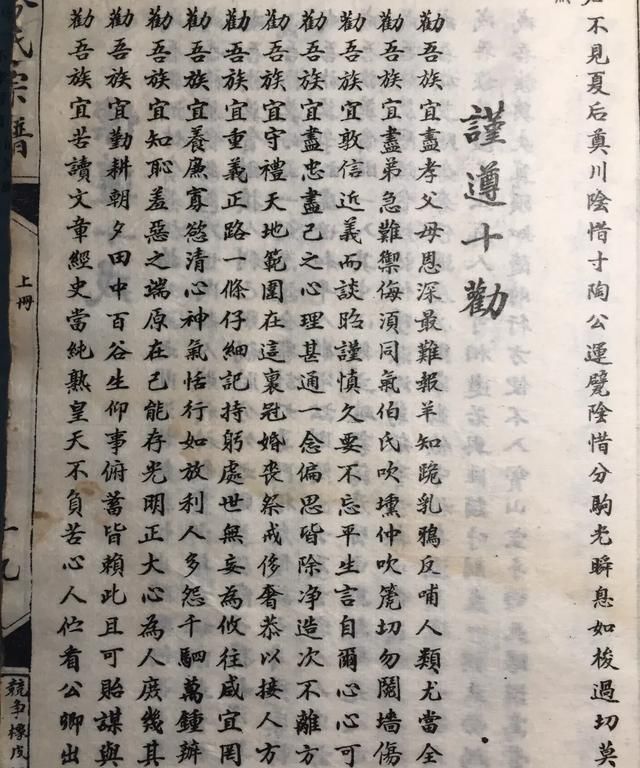 不見夏后奠川陰惜寸陶公運甓陰惜分駒光瞬息如梭過切莫
謹遵十勸
勸吾族宜盡孝父母恩深最難報羊知跪乳鴉反哺人類尤當全
勸吾族宜盡弟急難禦侮須同氣伯氏吹壎仲吹箎切勿鬩墻傷
勸吾族宜敦信近義而談昭謹慎久要不忘平生言自爾心心可
勸吾族宜盡忠盡己之心理甚通一念偏思皆除净造次不離方
勸吾族宜守禮天地範圍在這裏冠婚喪祭戒侈奢恭以接人方
勸吾族宜重義正路一條仔細記持躬處世無妄為攸往咸宜罔
勸吾族宜養廉寡慾清心神氣恬行如放利人多怨千駟萬鍾辦
勸吾族宜知恥羞惡之端原在己能存光明正大心為人庶幾其
勸吾族宜勤耕朝夕田中百谷生仰事俯蓄皆賴此且可貽謀與
勸吾族宜苦讀文章經史當純熟皇天不負苦心人伫看公卿出
氏宗譜
上冊
九